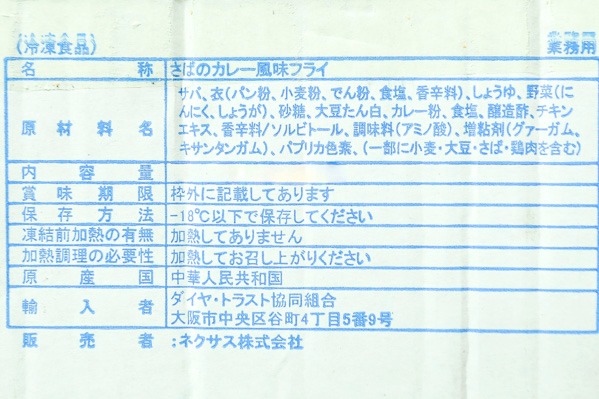 (冷凍食品) 業務用
名称 さばのカレー風味フライ
原材料名 サバ、衣(パン粉、小麦粉、でん粉、食塩、香辛料)、しょうゆ、野菜(に
んにく、しょうが)、砂糖、大豆たん白、カレー粉、食塩、醸造酢、チキン
エキス、香辛料/ソルビトール、調味料(アミノ酸)、増粘剤(グァーガム、
キサンタンガム)、パプリカ色素、(一部に小麦・大豆・さば・鶏肉を含む)
内容量
賞味期限 枠外に記載してあります
保存方法 -18℃以下で保存してください
凍結前加熱の有無 加熱してありません
加熱調理の必要性 加熱してお召し上がりください
原産国 中華人民共和国
輸入者 ダイヤ・トラスト協同組合
大阪市中央区谷町4丁目5番9号
販売者 :ネクサス株式会社